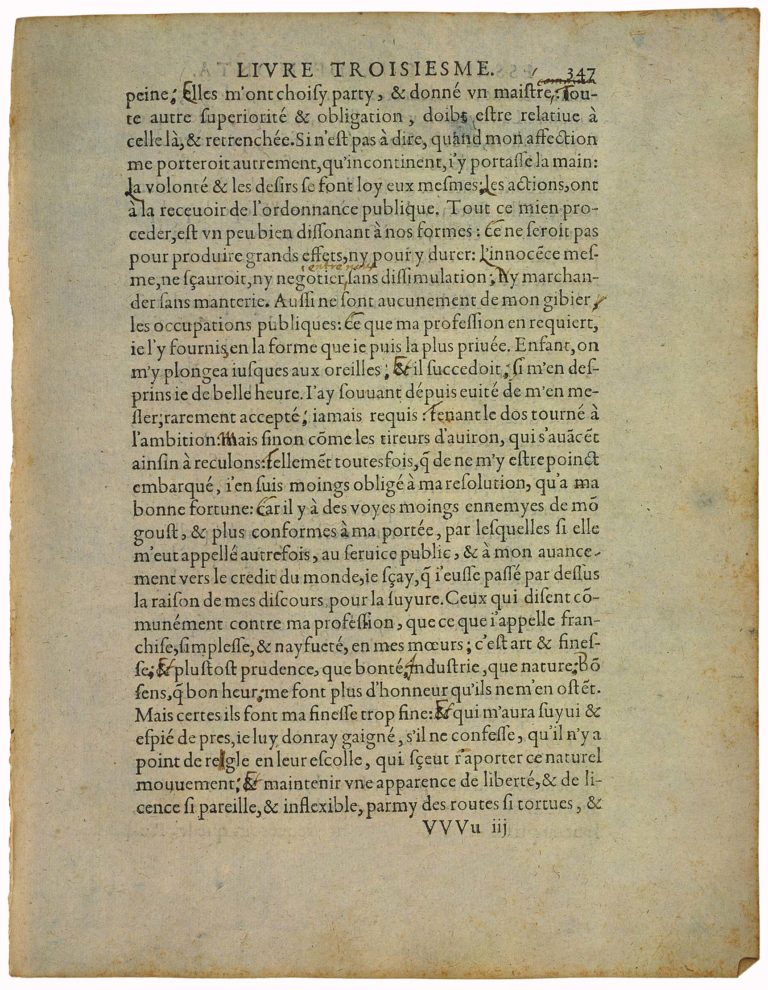 LIVRE TROISIESME. 347
peine; Elles m'ont choisy party, & donné vn maistre, Tou-
te autre superiorité & obligation, doibt estre relatiue à
celle là, & retrenchée. Si n'est pas à dire, quand mon affection
me porteroit autrement, qu'incontinent, i'y portasse la main:
la volonté & les desirs se font loy eux mesmes; les actions, ont
à la receuoir de l'ordonnance publique. Tout ce mien pro-
ceder, est vn peu bien dissonant à nos formes: Ce ne seroit pas
pour produire grands effets, ny pour y durer: l'innocẽce mes-
entre nous
me, ne sçauroit, ny negotier, sans dissimulation; Ny marchan-
der sans manterie. Aussi ne sont aucunement de mon gibier,
les occupations publiques: Ce que ma profession en requiert,
ie l'y fournis, en la forme que ie puis la plus priuée. Enfant, on
m'y plongea iusques aux oreilles; & il succedoit; si m'en des-
prins ie de belle heure. I'ay souuant dépuis euité de m'en me-
sler; rarement accepté; iamais requis: Tenant le dos tourné à
l'ambition: Mais sinon cõme les tireurs d'auiron, qui s'auãcẽt
ainsin à reculons: Tellemẽt toutesfois, q̃ de ne m'y estre poinct
embarqué, i'en suis moings obligé à ma resolution, qu'a ma
bonne fortune: Car il y à des voyes moings ennemyes de mõ
goust, & plus conformes à ma portée, par lesquelles si elle
m'eut appellé autrefois, au seruice public, & à mon auance-
ment vers le credit du monde, ie sçay, q̃ i'eusse passé par dessus
la raison de mes discours, pour la suyure. Ceux qui disent cõ-
munément contre ma profession, que ce que i'appelle fran-
chise, simplesse, & nayfueté, en mes mœurs; c'est art & fines-
se; & plustost prudence, que bonté; industrie, que nature; Bõ
sens, q̃ bon heur; me font plus d'honneur qu'ils ne m'en ostẽt.
Mais certes ils font ma finesse trop fine: & qui m'aura suyui &
espié de pres, ie luy donray gaigné, s'il ne confesse, qu'il n'y a
point de reigle en leur escolle, qui sçeut r'aporter ce naturel
mouuement; & maintenir vne apparence de liberté, & de li-
cence si pareille, & inflexible, parmy des routes si tortues, &
VVVu iij